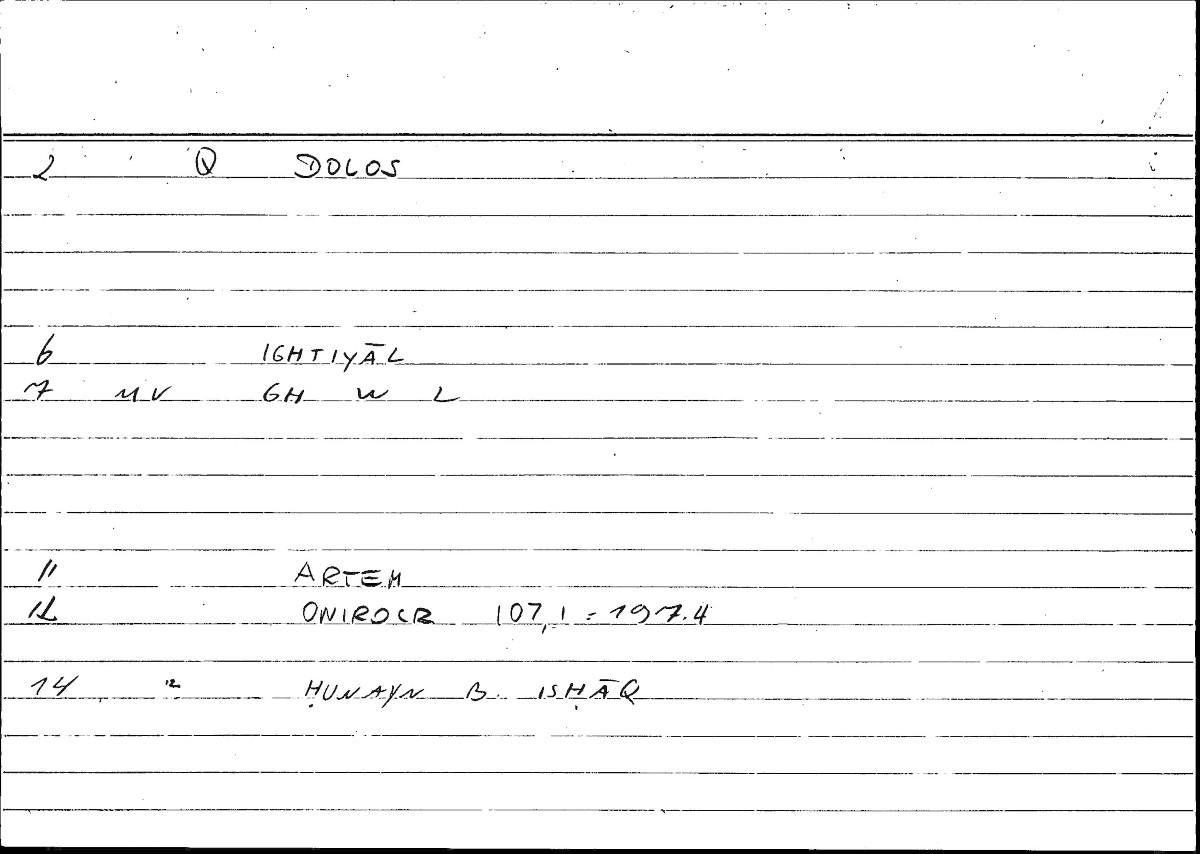 2 Q DOLOS
6 IGHTIYĀL
7 MV GH W L
11 ARTEM
12 ONIROCR 107,1 = 197.4
14 12 ḤUNAYN B. ISḤĀQ